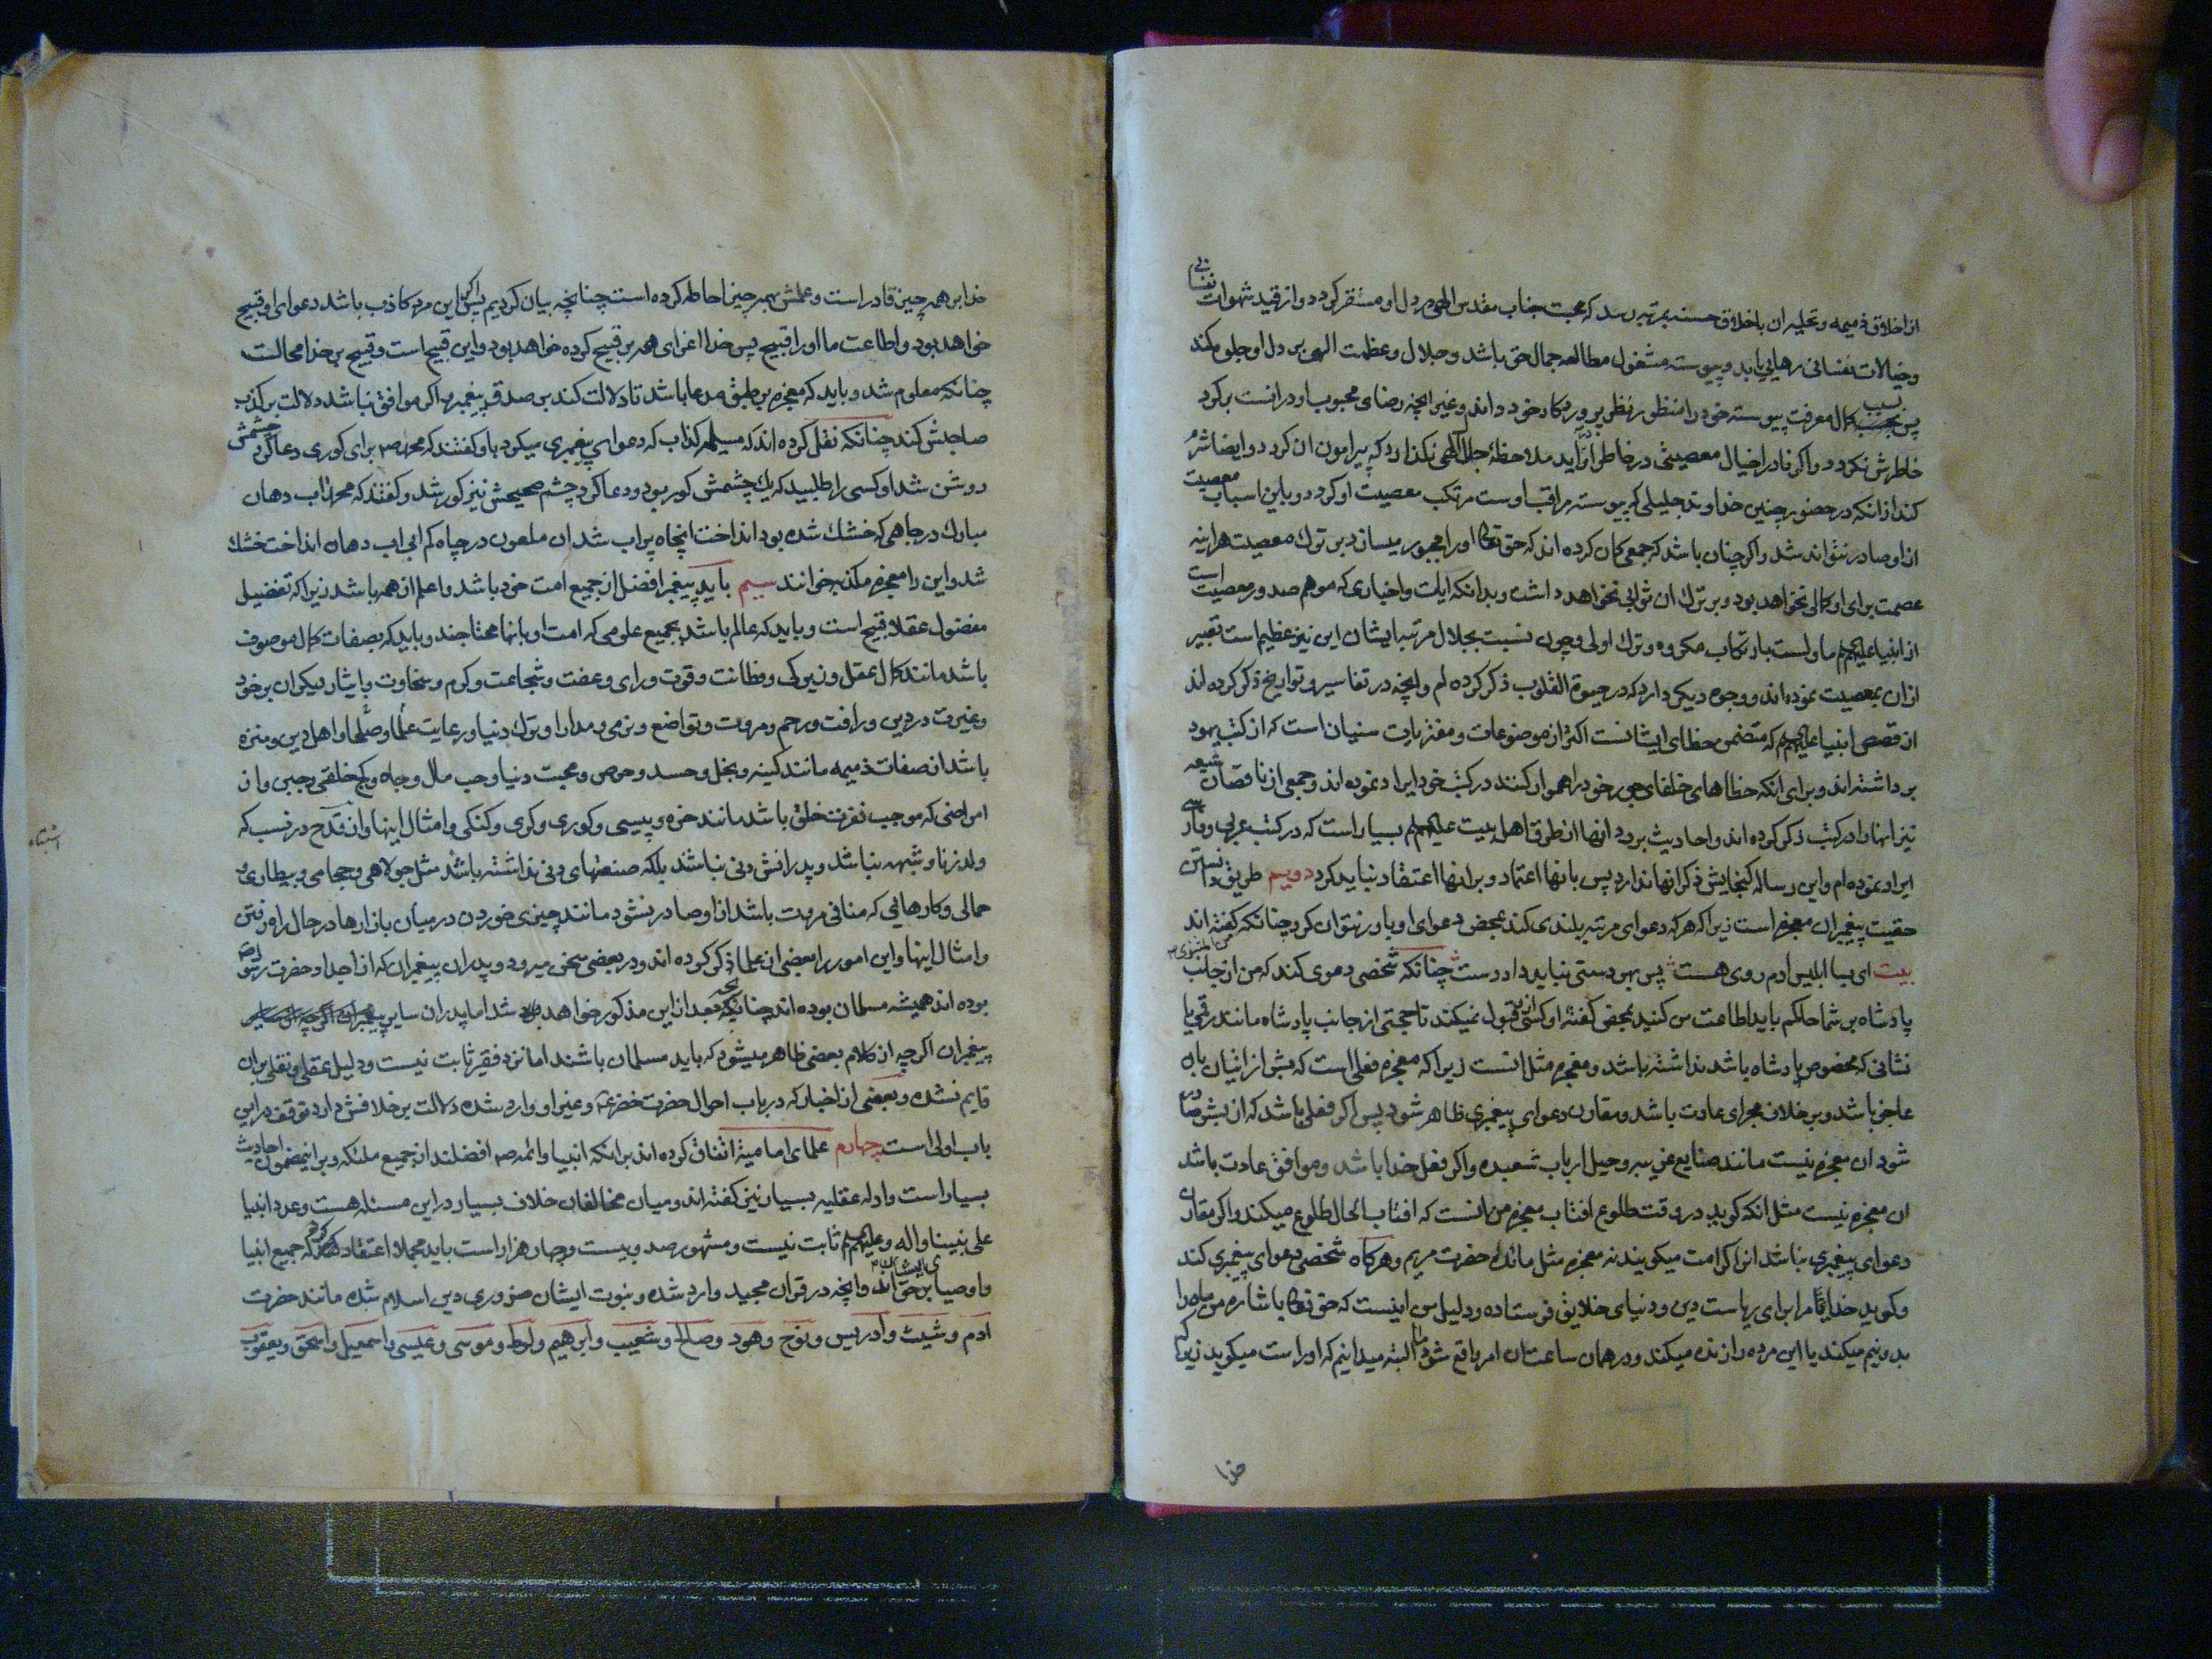 از اخلاق ذمیمه و تحلیه ان باخلاق حسنه بمرتبه رسد که محبت جناب مقدس الهی در دل او مستقر کردد و از قید شهوات نفسانی
و خیالات نفسانی رهایی یابد و پیوسته مشغول مطالعه جمال حق باشد و جلال و عظمت الهی بر دل او جلوه کند
پس بسبب کمال معرفت پیوسته خود را منظور نظر پروردکار خود داند و غیر انچه رضای محبوب او در انست برکرد
خاطرش نکردد و اکر نادرا خیال معصیتی در خاطر او در اید ملاحظهٔ جلال الهی نکذارد که پیرامون ان کردد و ایضا شرم
کند از انکه در حضور چنین خداوند جلیلی که پیوسته مراقب اوست مرتکب معصیت او کردد و باین اسباب معصیت
از او صادر نتواند شد و اکر چنان باشد که جمعی کمان کرده اند که حق تعالی او را مجبور میسازد بر ترک معصیت هراینه
عصمت برای او کمالی نخواهد بود و بر ترک ان ثوابی نخواهد داشت و بدانکه ایات و اخباری که موهم صدور معصیت است
از انبیا علیهم السلم ماولست بارتکاب مکروه و ترک اولی و چون نسبت بجلال مرتبه ایشان این نیز عظیم است تعبیر
از ان بمعصیت نموده اند و وجوه دیکر دارد که در حیوة القلوب ذکر کرده ام و انچه در تفاسیر و تواریخ ذکر کرده اند
از قصص انبیا علیهم السلم که متضمن خطای ایشانست اکثر از موضوعات و مفتریات سنیان است که از کتب یهود
برداشته اند و برای انکه خطاهای خلفای جور خود را هموار کنند در کتب خود ایراد نموده اند و جمعی از ناقصان شیعه
نیز انها را در کتب ذکر کرده اند و احادیث بر رد انها از طرق اهل بیت علیهم السلم بسیار است که در کتب عربی و فارسی
ایراد نموده ام و این رساله کنجایش ذکر انها ندارد پس بانها اعتماد و برانها اعتقاد نباید کرد دویم طریق دانستن
حقیت پیغمبران معجزه است زیرا که هر که دعوای مرتبه بلندی کند بمحض دعوای او باور نتوان کرد چنانکه کفته اند
بیت ای بسا ابلیس ادم روی هست پس بهر دستی نباید داد دست چنانکه شخصی دعوی کند که من از جانب
پادشاه بر شما حاکم باید اطاعت من کنید بمحض کفتهٔ او کسی از او قبول نمیکند تا حجتی از جانب پادشاه مانند رقمی یا
نشانی که مخصوص پادشاه باشد نداشته باشد و معجزه مثل انست زیرا که معجزه فعلی است که بشر از اتیان بان
عاجز باشد و بر خلاف مجرای عادت باشد و مقارن دعوای پیغمبری ظاهر شود پس اکر فعلی باشد که از بشر صادر
شود ان معجزه نیست مانند صنایع غریبه و حیل ارباب شعبده و اکر فعل خدا باشد و موافق عادت باشد
ان معجزه نیست مثل انکه کوید در وقت طلوع افتاب معجزه من انست که افتاب الحال طلوع میکند و اکر مقارن
دعوای پیغمبری نباشد انرا کرامت میکویند نه معجزه مثل مائدهٔ حضرت مریم و هرکاه شخصی دعوای پیغمبری کند
و کوید خدا مرا برای ریاست دین و دنیای خلایق فرستاده و دلیل من اینست که حق تعالی باشاره من ماه را
بدو نیم میکند یا این مرده را زنده میکند و در همان ساعت ان امر واقع شود ما البته میدانیم که او راست میکوید زیرا که
خدا
خدا بر همه چیز قادر است و علمش بهمه چیز احاطه کرده است چنانچه بیان کردیم پس اکر این مرد کاذب باشد دعوای او قبیح
خواهد بود و اطاعت ما او را قبیح پس خدا اغرای همه بر قبیح کرده خواهد بود و این قبیح است و قبیح بر خدا محالست
چنانکه معلوم شد و باید که معجزه بر طبق مدعا باشد تا دلالت کند بر صدق پیغمبر و اکر موافق نباشد دلالت بر کذب
صاحبش کند چنانکه نقل کرده اند که مسیلمه کذاب که دعوای پیغمبری میکرد باو کفتند که محمد ص برای کوری دعا کرد چشمش
روشن شد او کسی را طلبید که یک چشمش کور بود و دعا کرد چشم صحیحش نیز کور شد و کفتند که محمد اب دهان
مبارک در چاهی که خشک شده بود انداخت انچاه پراب شد ان ملعون در چاه کم ابی اب دهان انداخت خشک
شد و این را معجزه مکذبه خوانند سیم باید پیغمبر افضل از جمیع امت خود باشد و اعلم از همه باشد زیرا که تفضیل
مفضول عقلا قبیح است و باید که عالم باشد بجمیع علومی که امت او بانها محتاجند و باید که بصفات کمال موصوف
باشد مانند کمال عقل و زیرکی و فطانت و قوت و رای و عفت و شجاعت و کرم و سخاوت و ایثار دیکران بر خود
و غیرت در دین و رافت و رحم و مروت و تواضع و نرمی و مدارا و ترک دنیا و رعایت علما و صلحا و اهل دین و منزه
باشد از صفات ذمیمه مانند کینه و بخل و حسد و حرص و محبت دنیا و حب مال و جاه و کج خلقی و جبن و از
امراضی که موجب نفرت خلق باشد مانند خوره و پیسی و کوری و کری و کنکی و امثال اینها و از قدح در نسب که
ولد زنا و شبهه نباشد و پدرانش دنی نباشند بلکه صنعتهای دنی نداشته باشد مثل جولاهی و حجامی و بیطاری و
حمالی و کارهایی که منافی مروت باشد از او صادر نشود مانند چیزی خوردن در میان بازارها در حال راه رفتن
و امثال اینها و این امور را بعضی از علما ذکر کرده اند و در بعضی سخن میرود و پدران پیغمبران که از اجداد حضرت رسول ص
بوده اند همیشه مسلمان بوده اند چنانچه بعد از این مذکور خواهد شد اما پدران سایر
پیغمبران اکر چه از کلام بعضی ظاهر میشود که باید مسلمان باشند اما نزد فقیر ثابت نیست و دلیل عقلی و نقلی بر ان
قایم نشده و بعضی از اخبار که در باب احوال حضرت خضر ع و غیر او وارد شده دلالت بر خلافش دارد توقف در این
باب اولی است چهارم علمای امامیه اتفاق کرده اند بر انکه انبیا و ائمه ص افضلند از جمیع ملئکه و بر این مضمون احادیث
بسیار است و ادله عقلیه بسیار نیز کفته اند و میان مخالفان خلاف بسیار در این مسئله هست و عدد انبیا
علی نبینا و اله و علیهم السلم ثابت نیست و مشهور صد و بیست و چهار هزار است باید مجملا اعتقاد کرد که جمیع انبیا
و اوصیای ایشان بر حق اند و انچه در قران مجید وارد شده و نبوت ایشان ضروری دین اسلام شده مانند حضرت
ادم و شیث و ادریس و نوح و هود و صالح و شعیب و ابرهیم و لوط و موسی و عیسی و اسمعیل و اسحق و یعقوب